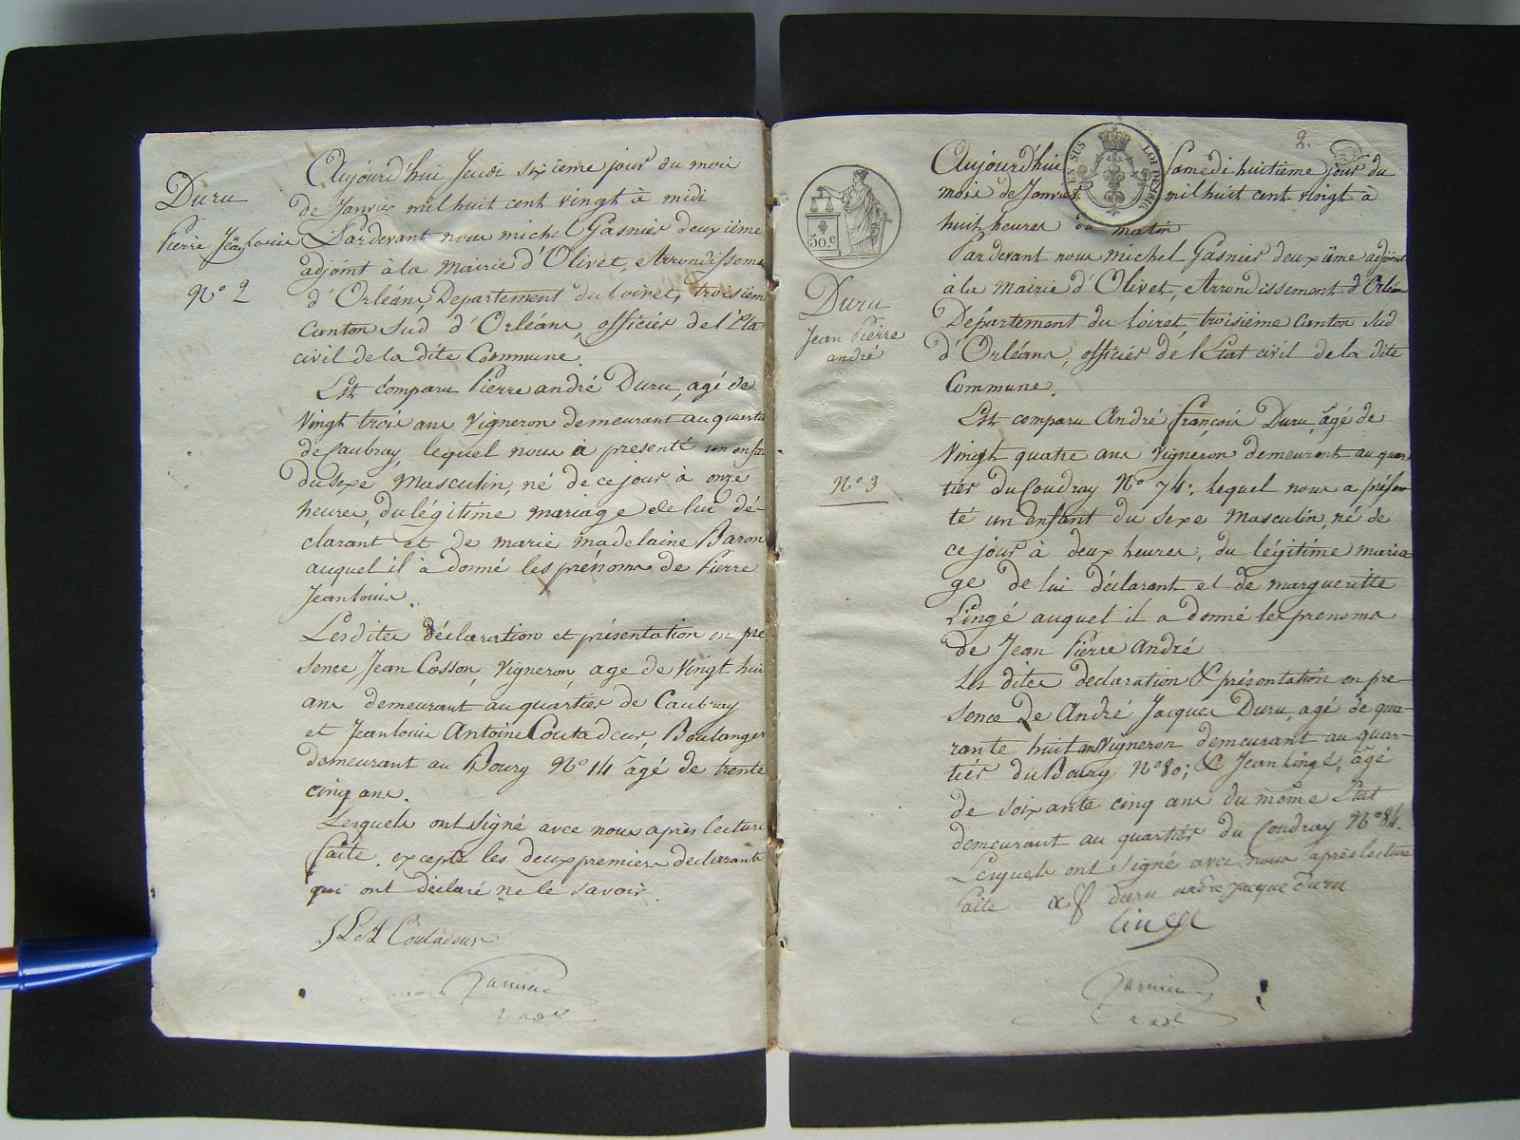 Duru
Pierre Jean louis
N° 2
Aujourd'hui Jeudi sixieme jour du mois
de Janvier mil huit cent vingt à midi
Pardevant nous michel Gasnier deuxième
adjoint à la Mairie d'Olivet, Arrondisseme
d'Orléans Departement du Loiret, troisiem
Canton Sud d'Orléans, officier de l'éta
civil de la dite Commune.
Est comparu Pierre andré Duru, agé de
Vingt trois ans Vigneron demeurant au quartie
de Caubray, lequel nous a presenté un enfa
du sexe Masculin, né de ce jour à onze
heures, du légitime mariage de lui dé-
clarant et de marie madelaine Baron
auquel il a donné les prénoms de Pierre
Jean louis.
Lesdites déclaration et présentation en pre
sence Jean Cosson, Vigneron, age de Vingt huit
ans demeurant au quartier de Caubray
et Jean louis Antoine Coutadeur, Boulanger
demeurant au Bourg N° 14 âgé de trente
cinq ans.
Lesquels ont signé avec nous après lecture
faite. excepté les deux premiers declarants
qui ont déclaré ne le savoir.
JLA Coutadeur
2.
EN SUS
LOI DE 1816
30.c
Duru
Jean Pierre
andré
N° 3
Aujourd'hui Samedi huitième jour du
mois de Janvier mil huit cent vingt à
huit heures du matin
Pardevant nous michel Gasnier deuxième adjoint
à la Mairie d'Olivet, Arrondissement d'Orléans
Département du Loiret, troisième Canton Sud
d'Orléans, officier de l'Etat civil de la dite
Commune.
Est comparu André françois Duru, âgé de
Vingt quatre ans Vigneron demeurant au quar
tier du Coudray N° 74. Lequel nous a présen
té un enfant du sexe Masculin, né de
ce jour à deux heures, du légitime maria
ge de lui déclarant et de margueritte
Lingé auquel il a donné les prenoms
de Jean Pierre André
Les dites declaration & présentation en pre-
sence de André Jacques Duru, agé de qua-
rante huit ans Vigneron demeurant au quar-
tier du Bourg N° 80; & Jean Lingé, âgé
de soixante cinq ans du même Etat
demeurant au quartier du Coudray N° 84.
Lesquels ont signé avec nous après lecture
faite a f duru andre jacque duru